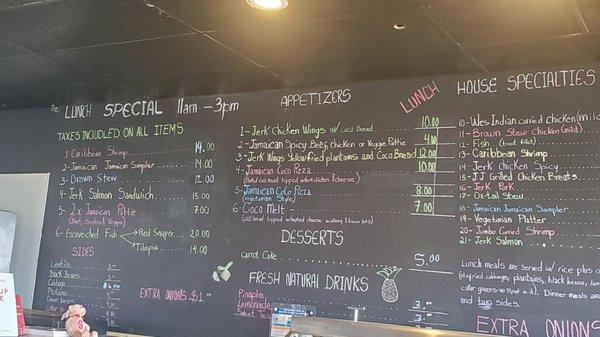 LUNCH SPECIAL 11am - 3pm
TAXES INCLUDED ON ALL ITEMS
1- Caribbean Shrimp 14.00
2- Jamaican Jamaican Sampler 14.00
3- Brown Stew 12.00
4- Jerk Salmon Sandwich 13.00
5- 2x Jamaican Pattie 7.00
(Beef, chicken & Veggie)
6- Escoveiched Fish Red Snapper 20.00
Tilapia 14.00
SIDES
Lentils
Black Beans
Cabbage
Plantains
Green beans
EXTRA ONIONS $1
APPETIZERS
LUNCH
1- Jerk Chicken Wings w/ Coco Bread 10.00
2- Jamaican Spicy Beef, chicken or Veggie Pattie 4.00
3- Jerk Wings Yellow fried plantains and Coco Bread 12.00
4- Jamaican Coco Pizza 10.00
5- Jamaican Coco Pizza 8.00
(vegetarian Style)
6- Coco Melt 7.00
DESSERTS
Carrot Cake 5.00
FRESH NATURAL DRINKS
Pinaple 3.00
Lemonade
Sweet Tea
HOUSE SPECIALTIES
10- Wes Indian curried chicken (mild
11- Brown Stew chicken (mild)
12- Fish
13- Caribbean Shrimp
14- Jerk Chicken Spicy
15- JJ Grilled Chicken Breast
16- Jerk Pork
17- Ox-tail Stew
18- Jamaican Jamaican Sampler
19- Vegetarian Platter
20- Jumbo Curried Shrimp
21- Jerk Salmon
Lunch meals are served w/ rice plus o
and two sides.
EXTRA ONIONS